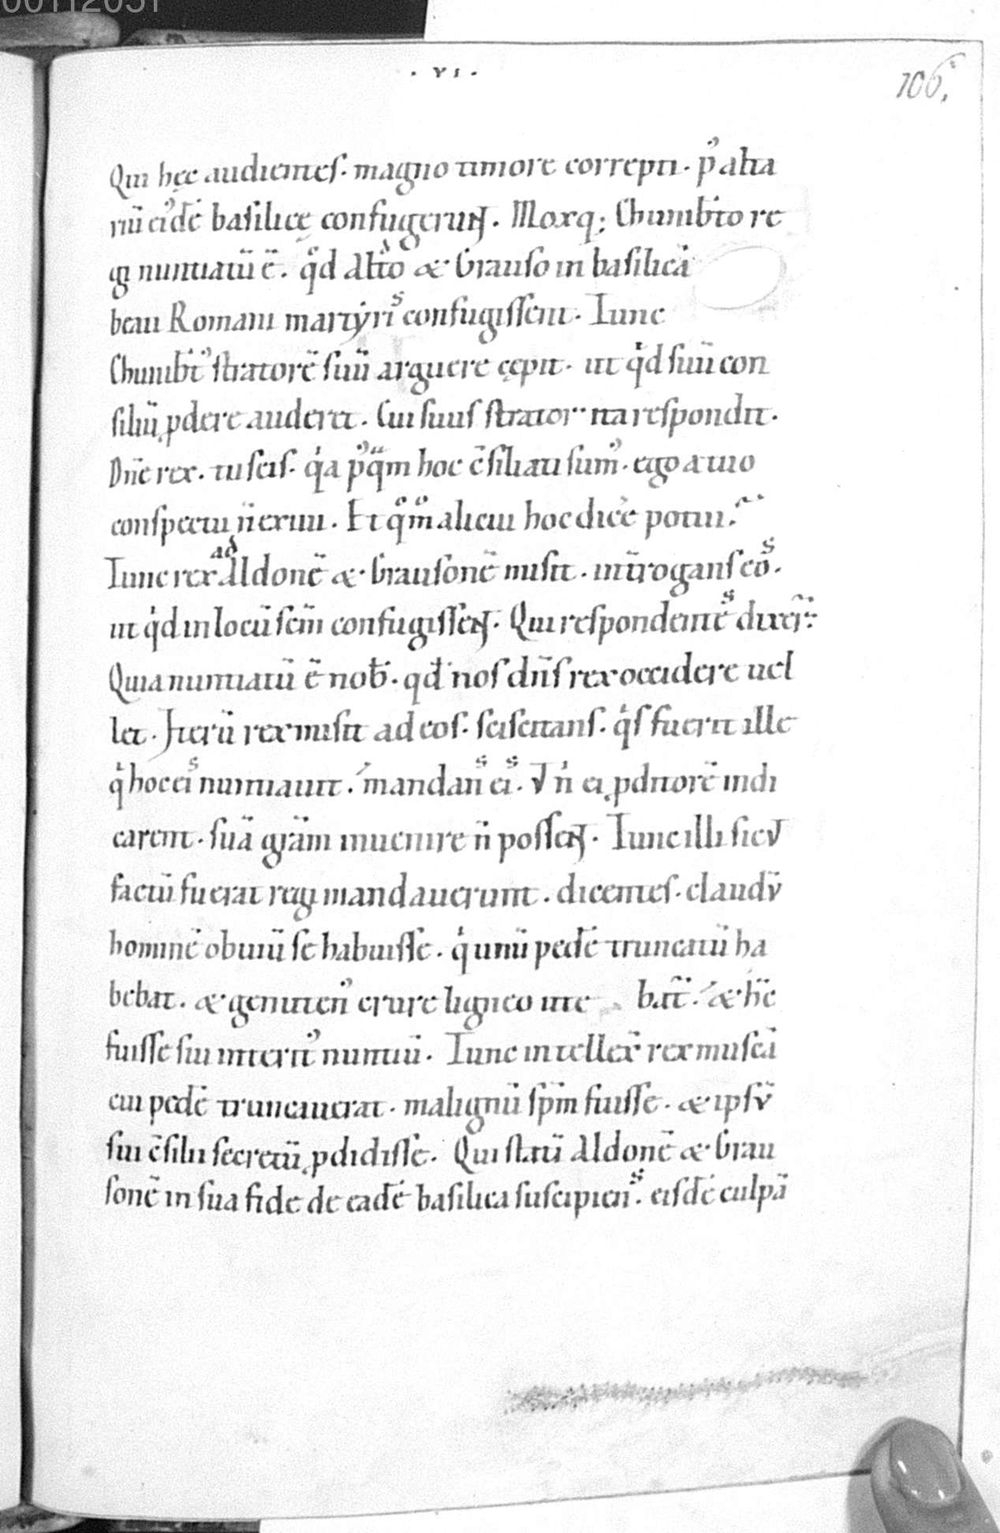 00112051
· VI ·
106.
Qui hęc audientes. magno timore correpti. p᾽ alta
riũ ei᾽dẽ basilicę confugerunt. Moxq; Chunib̃to re
gi nuntiatũ ẽ. qd̊ Aldo & Grauso in basilicã
beati Romani martyris confugissent. Tunc
Chunib̃t᾽ stratorẽ suũ arguere cępit. ut qͥd suũ con
siliũ ꝓdere auderet. Cui suus strator ita respondit.
Dñe rex. tu scis. qͣa p᾽qͣm hoc c̃siliati sum᾽. ego a tuo
conspectu ñ exiui. Et qͦm̊ alicui hoc dicẽ potui?
Tunc rex ad Aldonẽ & Grausonẽ misit. int̃rogans eos.
ut qͥd in locũ sc̃m confugissent. Qui respondentes dixer̃:
Quia nuntiatũ ẽ nob̃. qd̃ nos dñs rex occidere uel
let. Iterũ rex misit ad eos. sciscitans. qͥs fuerit ille
qͥ hoc eis nuntiauit. mandans eis. ut nͥ ei ꝓditorẽ indi
carent. suã gr̃am inuenire ñ possent. Tunc illi sicut
factũ fuerat regi mandauerunt. dicentes. claudũ
hominẽ obuiũ se habuisse. qͥ unũ pedẽ truncatũ ha
bebat. & genuten᾽ crure ligneo ute batr̃. & hc̃
fuisse sui interit᾽ nuntiũ. Tunc intellex̃ rex muscã
cui pedẽ truncauerat. malignũ sp̃m fuisse. & ipsũ
sui c̃silii secretũ ꝓdidisse. Qui statĩ Aldonẽ & Grau
sonẽ in sua fide de eadẽ basilica suscipiens. eisdẽ culpã